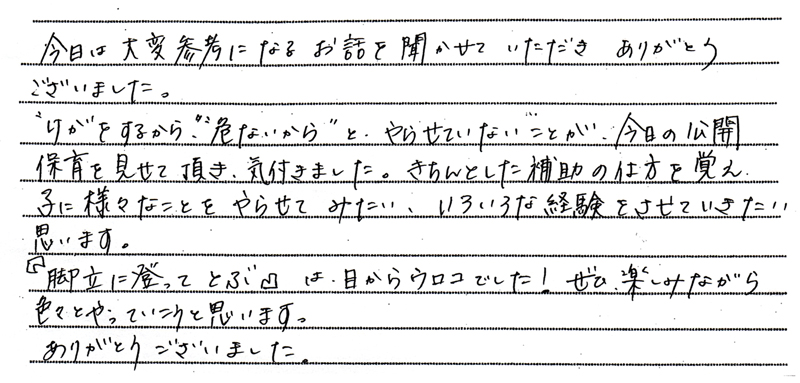 今日は大変参考になるお話を聞かせていただき ありがとう
ございました。
"けが"をするから、"危ないから"と、やらせていない"ことが、今日の公開
保育を見せて頂き、気付きました。きちんとした補助の仕方を覚え、
子に様々なことをやらせてみたい、いろいろな経験をさせていきたい
思います。
『脚立に登ってとぶ』は、目からウロコでした！ ぜひ、楽しみながら
色々とやっていこうと思います。
ありがとうございました。